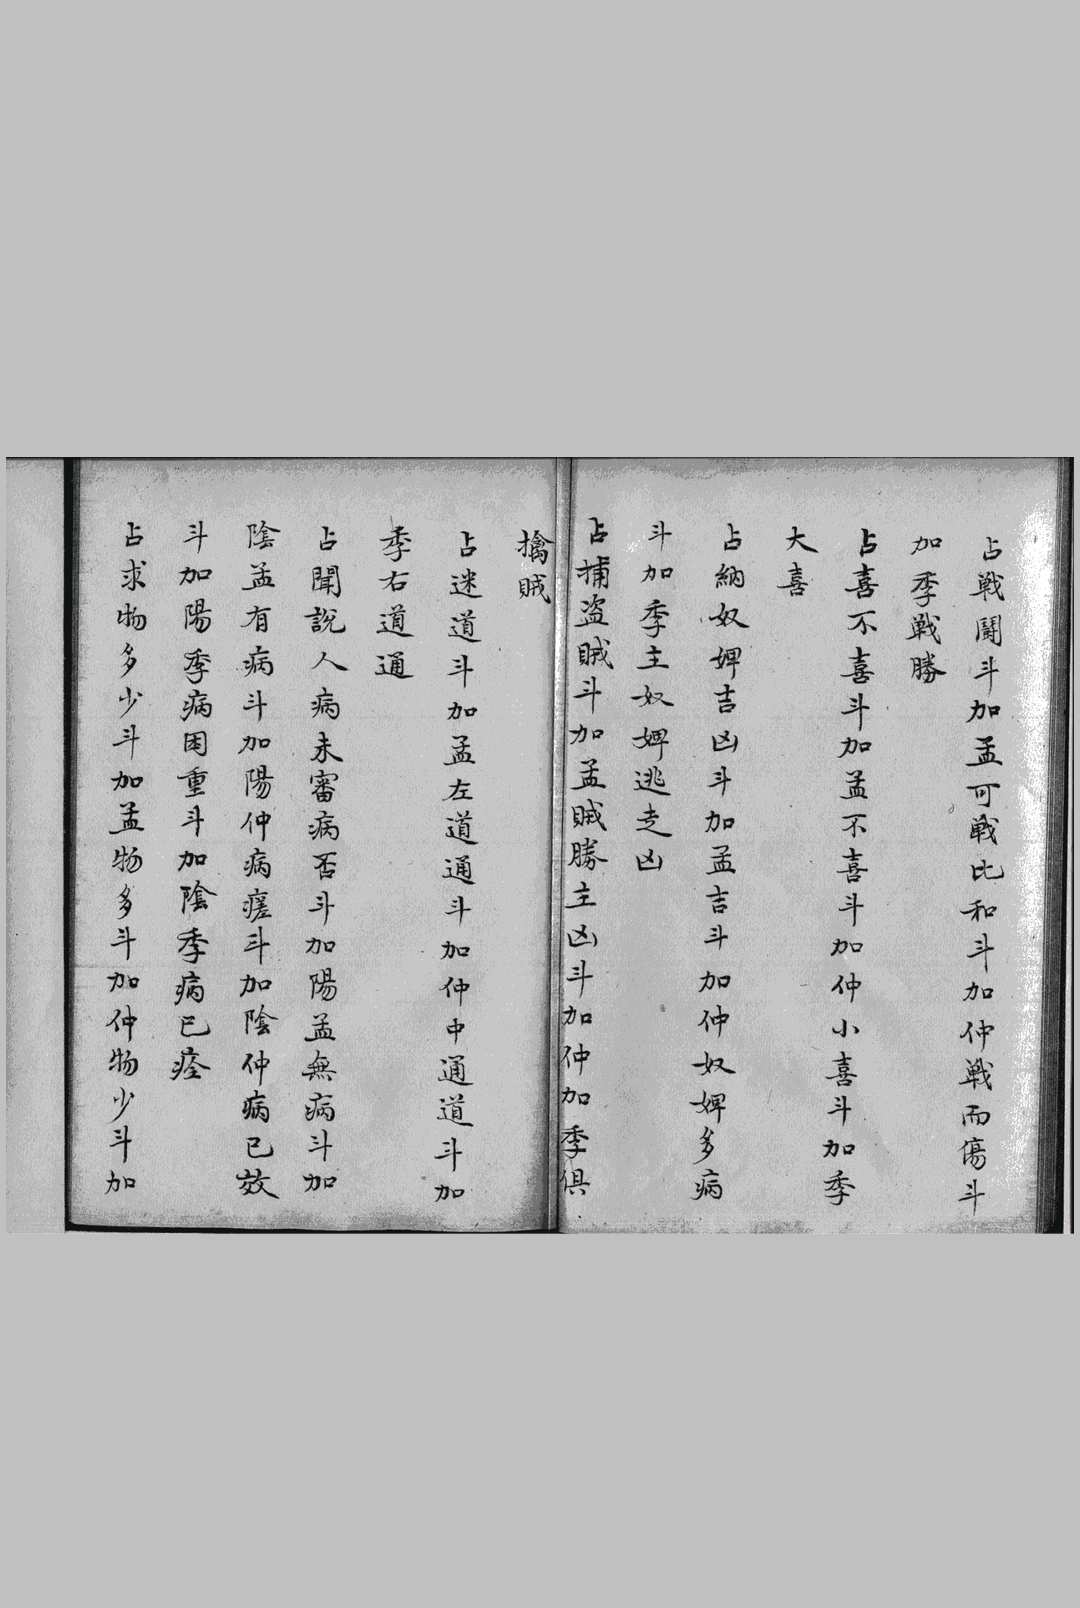 占戦鬪斗加孟可戦比和斗加仲戦而傷斗
加季戦勝
占喜不喜斗加孟不喜斗加仲小喜斗加季
大喜
占納奴婢吉凶斗加孟吉斗加仲奴婢多病
斗加季主奴婢逃走凶
占捕盗賊斗加孟賊勝主凶斗加仲加季俱
擒賊
占迷道斗加孟左道通斗加仲中通道斗加
季右道通
占聞說人病未審病否斗加陽孟無病斗加
陰孟有病斗加陽仲病瘥斗加陰仲病已效
斗加陽季病困重斗加陰季病已痊
占求物多少斗加孟物多斗加仲物少斗加